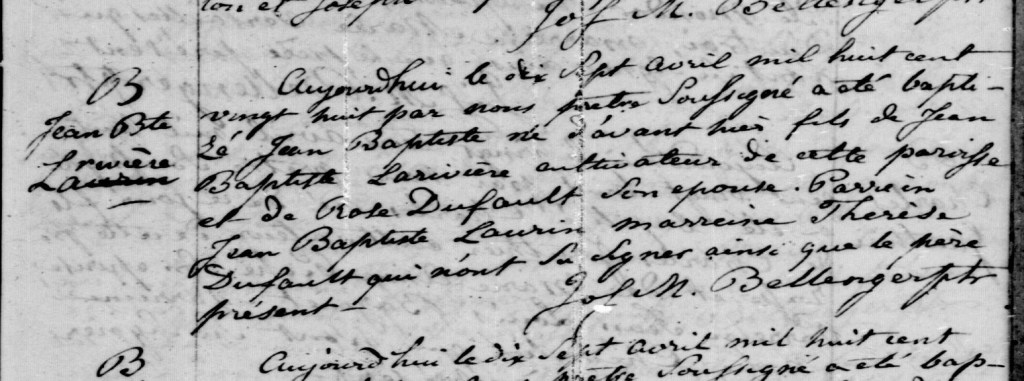 ion et Joseph
Jos M. Bellenger ptr
B
Jean Bte
Larivière
Laurin
Aujourdhui le dix Sept avril mil huit cent
vingt huit par nous prêtre Soussigné a été bapti-
sé Jean Baptiste né d'avant hier fils de Jean
Baptiste Larivière cultivateur de cette paroisse
et de Rose Dufault Son epouse. Parrein
Jean Baptiste Laurin marreine Therèse
Dufault qui n'ont Su Signer ainsi que le père
présent -
Jos M. Bellenger ptr
B
Aujourdhui le dix Sept avril mil huit cent
prêtre Soussigné a été bap-